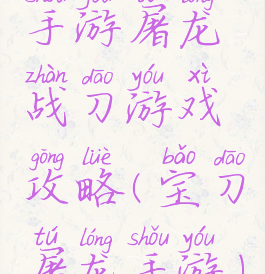 shǒu yóu tú lóng
手游屠龙
zhàn dāo yóu xì
战刀游戏
gōng lüè bǎo dāo
攻略(宝刀
tú lóng shǒu yóu
屠龙手游)